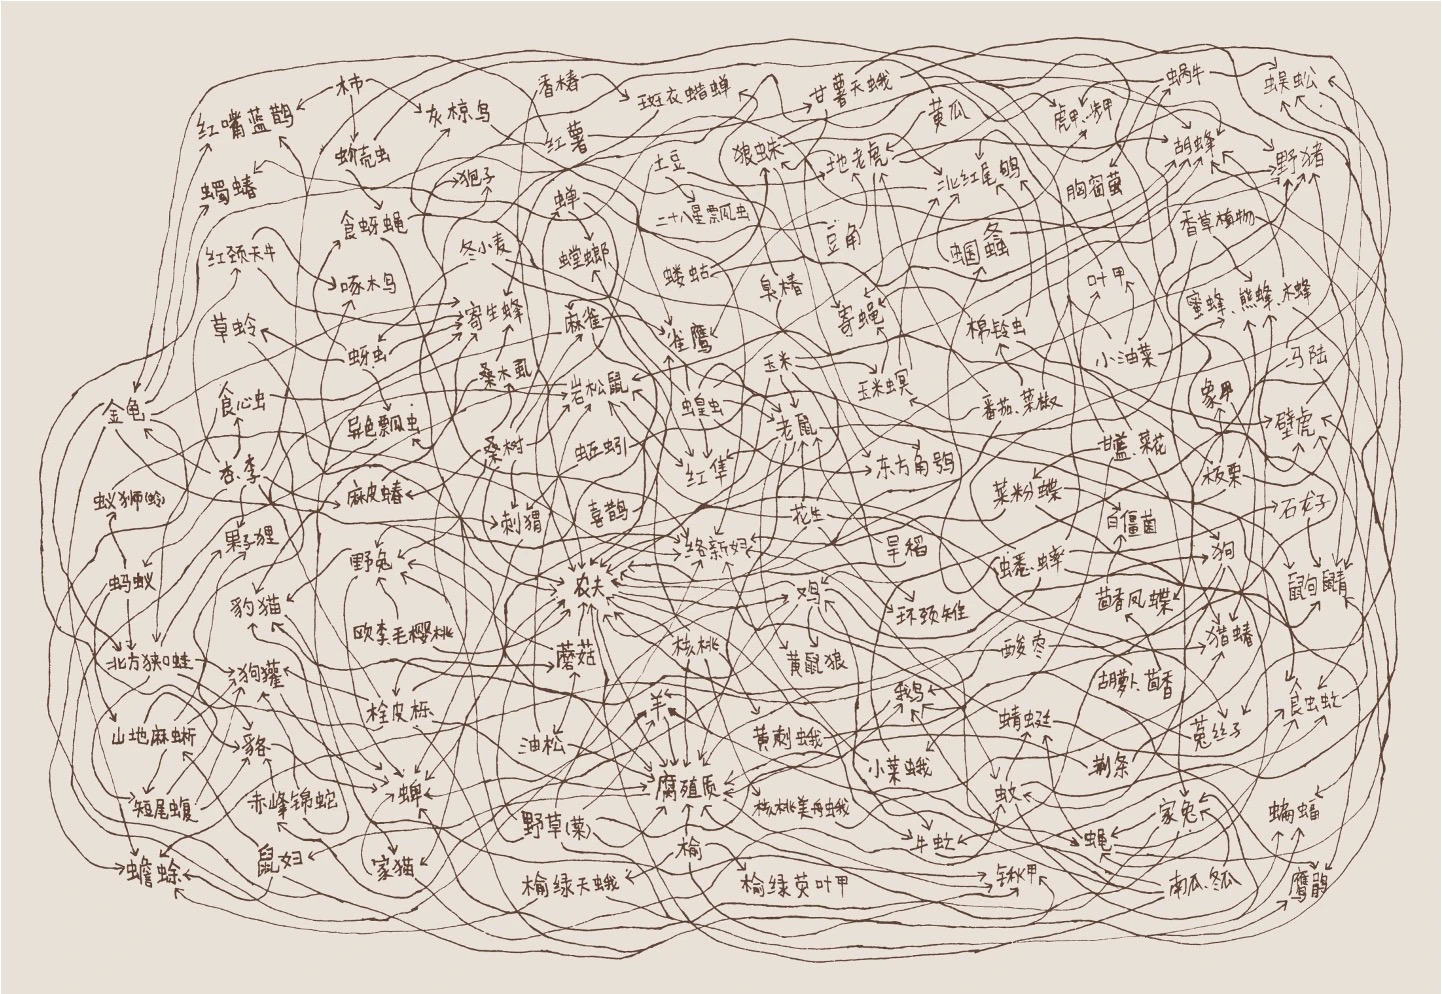 柿
香椿
斑衣蜡蝉
甘薯天蛾
黄瓜
虎甲.步甲
蜗牛
蜈蚣
红嘴蓝鹊
灰椋鸟
红薯
蚧壳虫
土豆
狼蛛
地老虎
北红尾鸲
胸窗萤
胡蜂
野猪
蠋蝽
狍子
蝉
二十八星瓢虫
食蚜蝇
豆角
香草植物
红颈天牛
冬小麦
螳螂
蝼蛄
臭椿
蝈蝈
叶甲
啄木鸟
蜜蜂.熊蜂.木蜂
草蛉
寄生蜂
麻雀
雀鹰
寄蝇
棉铃虫
小油菜
马陆
蚜虫
桑木虱
岩松鼠
玉米
玉米螟
象甲
金龟
食心虫
异色瓢虫
蝗虫
老鼠
番茄.菜椒
壁虎
杏.李
桑树
蚯蚓
红隼
东方角鸮
甘蓝.菜花
板栗
蚁狮(蛉)
麻皮蝽
刺猬
喜鹊
花生
菜粉蝶
白僵菌
石龙子
果子狸
野兔
络新妇
旱稻
蟋蟀
狗
蚂蚁
农夫
鸡
环颈雉
茴香凤蝶
鼠句鼠青
豹猫
欧李毛樱桃
蘑菇
核桃
黄鼠狼
酸枣
猎蝽
北方狭口蛙
狗獾
栓皮栎
羊
鹅鸟
胡萝卜.茴香
食虫虻
山地麻蜥
貉
油松
黄刺蛾
蜻蜓
菟丝子
短尾蝮
赤峰锦蛇
蝉
腐殖质
小菜蛾
荆条
蚊
家兔
蝙蝠
蟾蜍
鼠妇
家猫
野草(菜)
榆
核桃美舟蛾
牛虻
蝇
榆绿天蛾
榆绿萤叶甲
锹甲
南瓜.冬瓜
鹰鹃